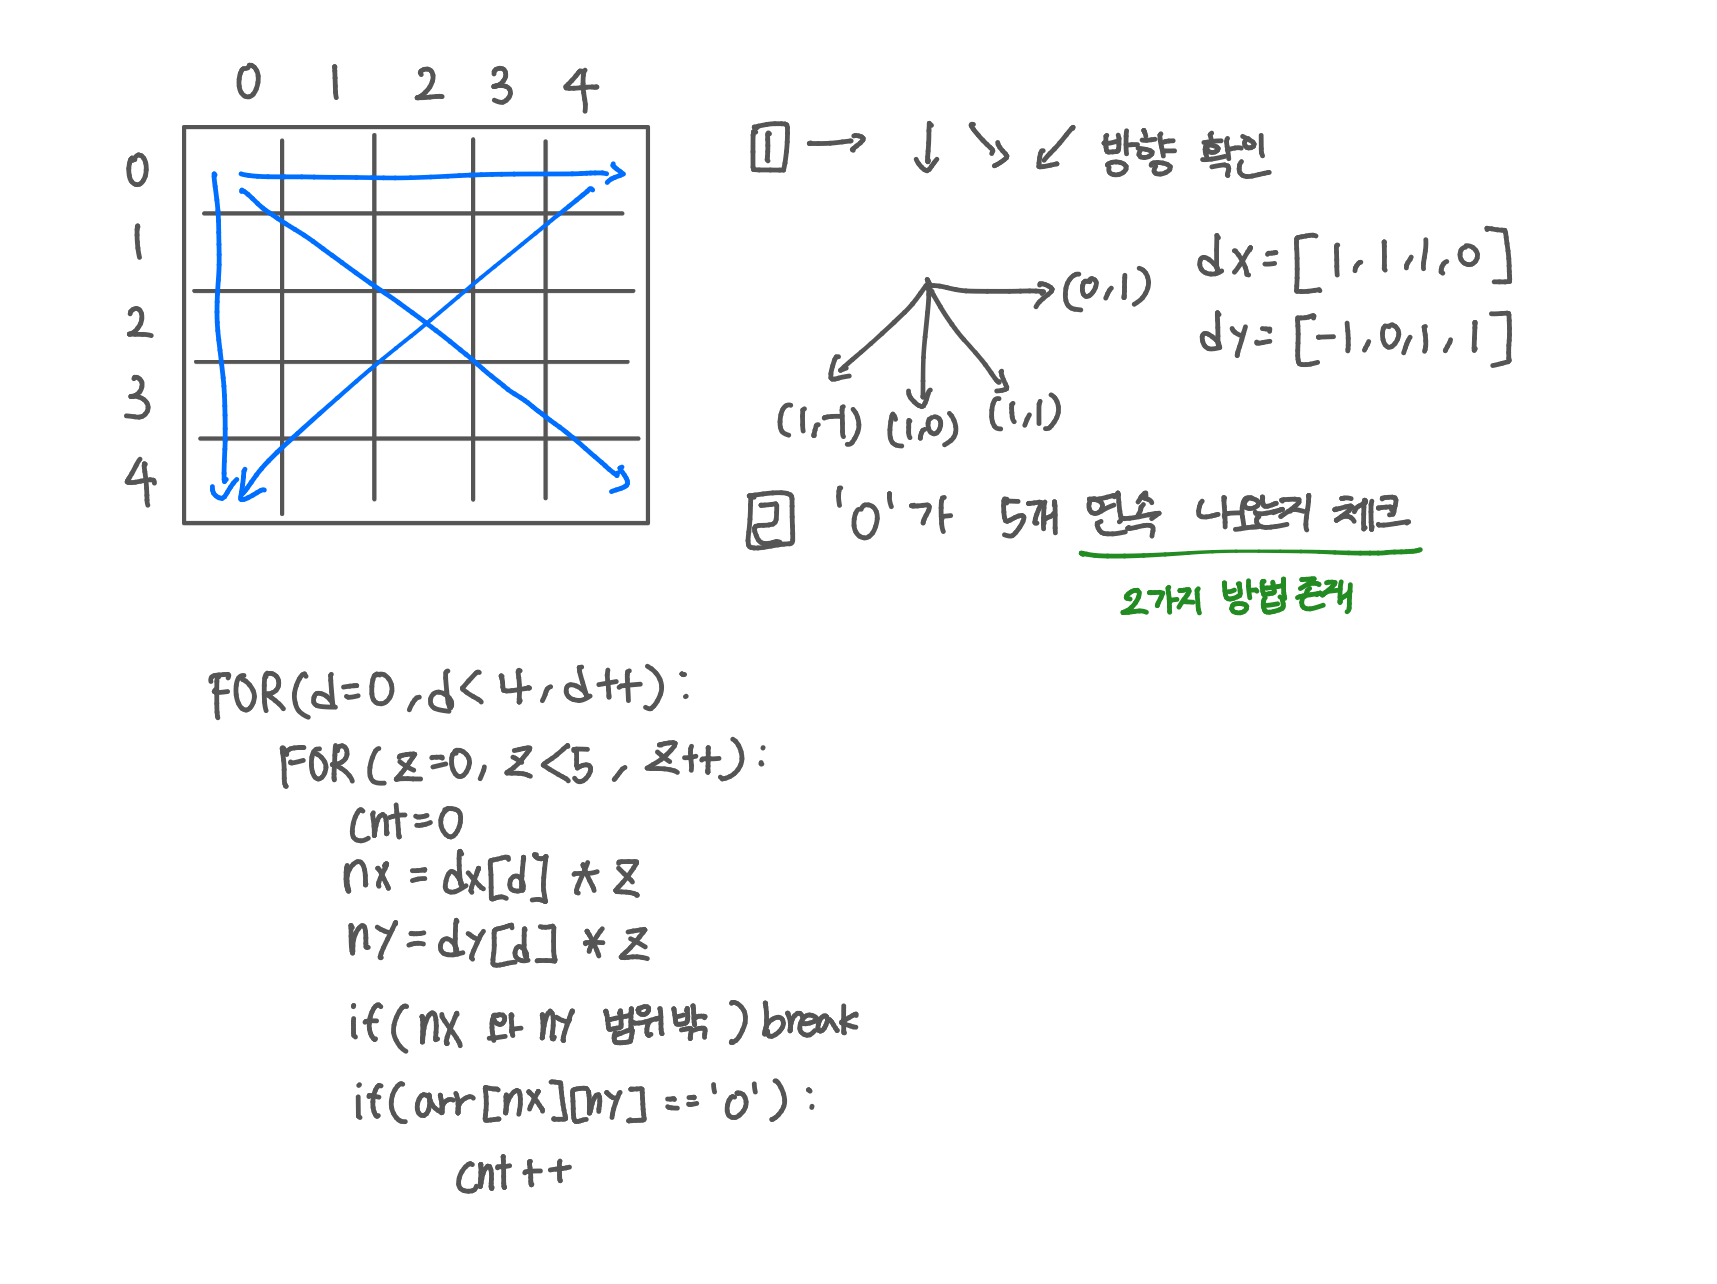 0 1 2 3 4
0
1
2
3
4
1 → ↓ ↘ ↙ 방향 확인
dx=[1,1,1,0]
(0,1)
dy=[-1,0,1,1]
(1,-1) (1,0) (1,1)
2 'O'가 5개 연속 나오는지 체크
2가지 방법존재
FOR(d=0,d<4,d++):
FOR(z=0,z<5,z++):
cnt=0
nx=dx[d]*z
ny=dy[d]*z
if(nx 와 ny 범위밖)break
if(arr[nx][ny]=='o'):
cnt++